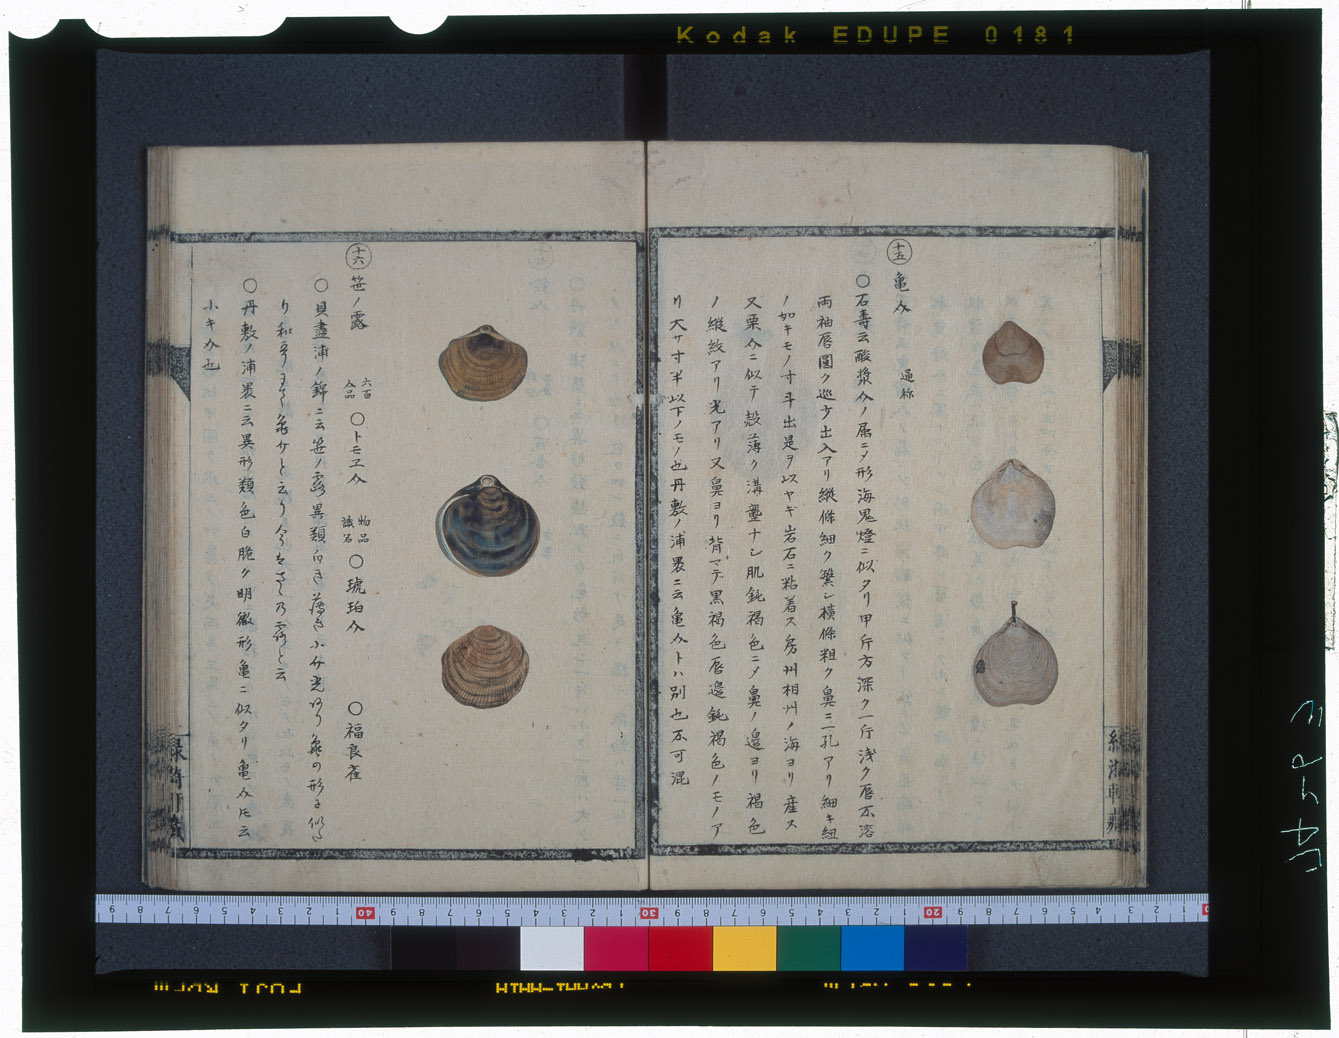 Kodak EDUPE 0181
十五
亀介 通称
〇石寿云酸漿介ノ属ニメ形海鬼燈ニ似タリ甲一片方深ク一片浅ク唇不濶
両袖唇圓ク巡少出入アリ縦條細ク繁シ横條粗ク鼻ニ一孔アリ細キ紐
ノ如キモノ寸斗出是ヲ以ヤキ岩石ニ粘着ス房州相州ノ海ヨリ産ス
又栗介ニ似テ殻薄ク溝壟ナシ肌鈍褐色ニメ鼻ノ邉ヨリ褐色
ノ縦紋アリ光アリ又鼻ヨリ背マデ黒褐色唇邉鈍褐色ノモノア
リ大サ寸半以下ノモノ也丹敷ノ浦裹ニ云亀介トハ別也不可混
十六
笹ノ露 六百介品 〇トモヱ介 物品識名 〇琥珀介 〇福良雀
〇貝盡浦ノ錦ニ云笹ノ露異類白き薄き小介光あり亀の形に似た
り和哥にも亀介と云り今はさゝ乃露と云
〇丹敷ノ浦裹ニ云異形類色白脆ク明徹形亀ニ似タリ亀介トモ云
小キ介也
FUJI
40
30
20